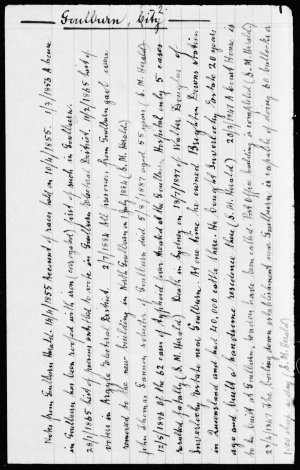 Goulburn, City 2.
Notes from Goulburn Herald. 14/4/1855 Account of races held on 10/4/1855. 1/3/1853 A house
in Goulburn has been roofed with iron (corrugated) first of such in Goulburn.
28/1/1865 List of persons entitled to vote in Goulburn Electoral District. 11/2/1865 List of
voters in Argyle Electoral District. 2/7/1884 All prisoners from Goulburn gaol were
removed to the new building in North Goulburn in July 1884 (S. M. Herald)
John Thomas Gannon, solicitor of Goulburn died 5/8/1881 aged 57 years (S. M. Herald).
12/5/1898 Of the 62 cases of typhoid fever treated at the Goulburn Hospital only 5 cases
resulted fatally (S. M. Herald) Death in Sydney on 13/7/1897 of Walter Douglas of
Inverlochy Estate near Goulburn. At one time he owned Brighton Downs station
in Queensland and had 100,000 cattle there. He bought Inverlochy Estate 20 years
ago and built a handsome residence there (S. M. Herald) 20/3/1841 A Court House is
to be built at Goulburn, tenders have been called. Post Office building is completed (S. M. Herald)
The boiling down establishment near Goulburn is capable of doing 60 bullocks or
(S. M. Herald)